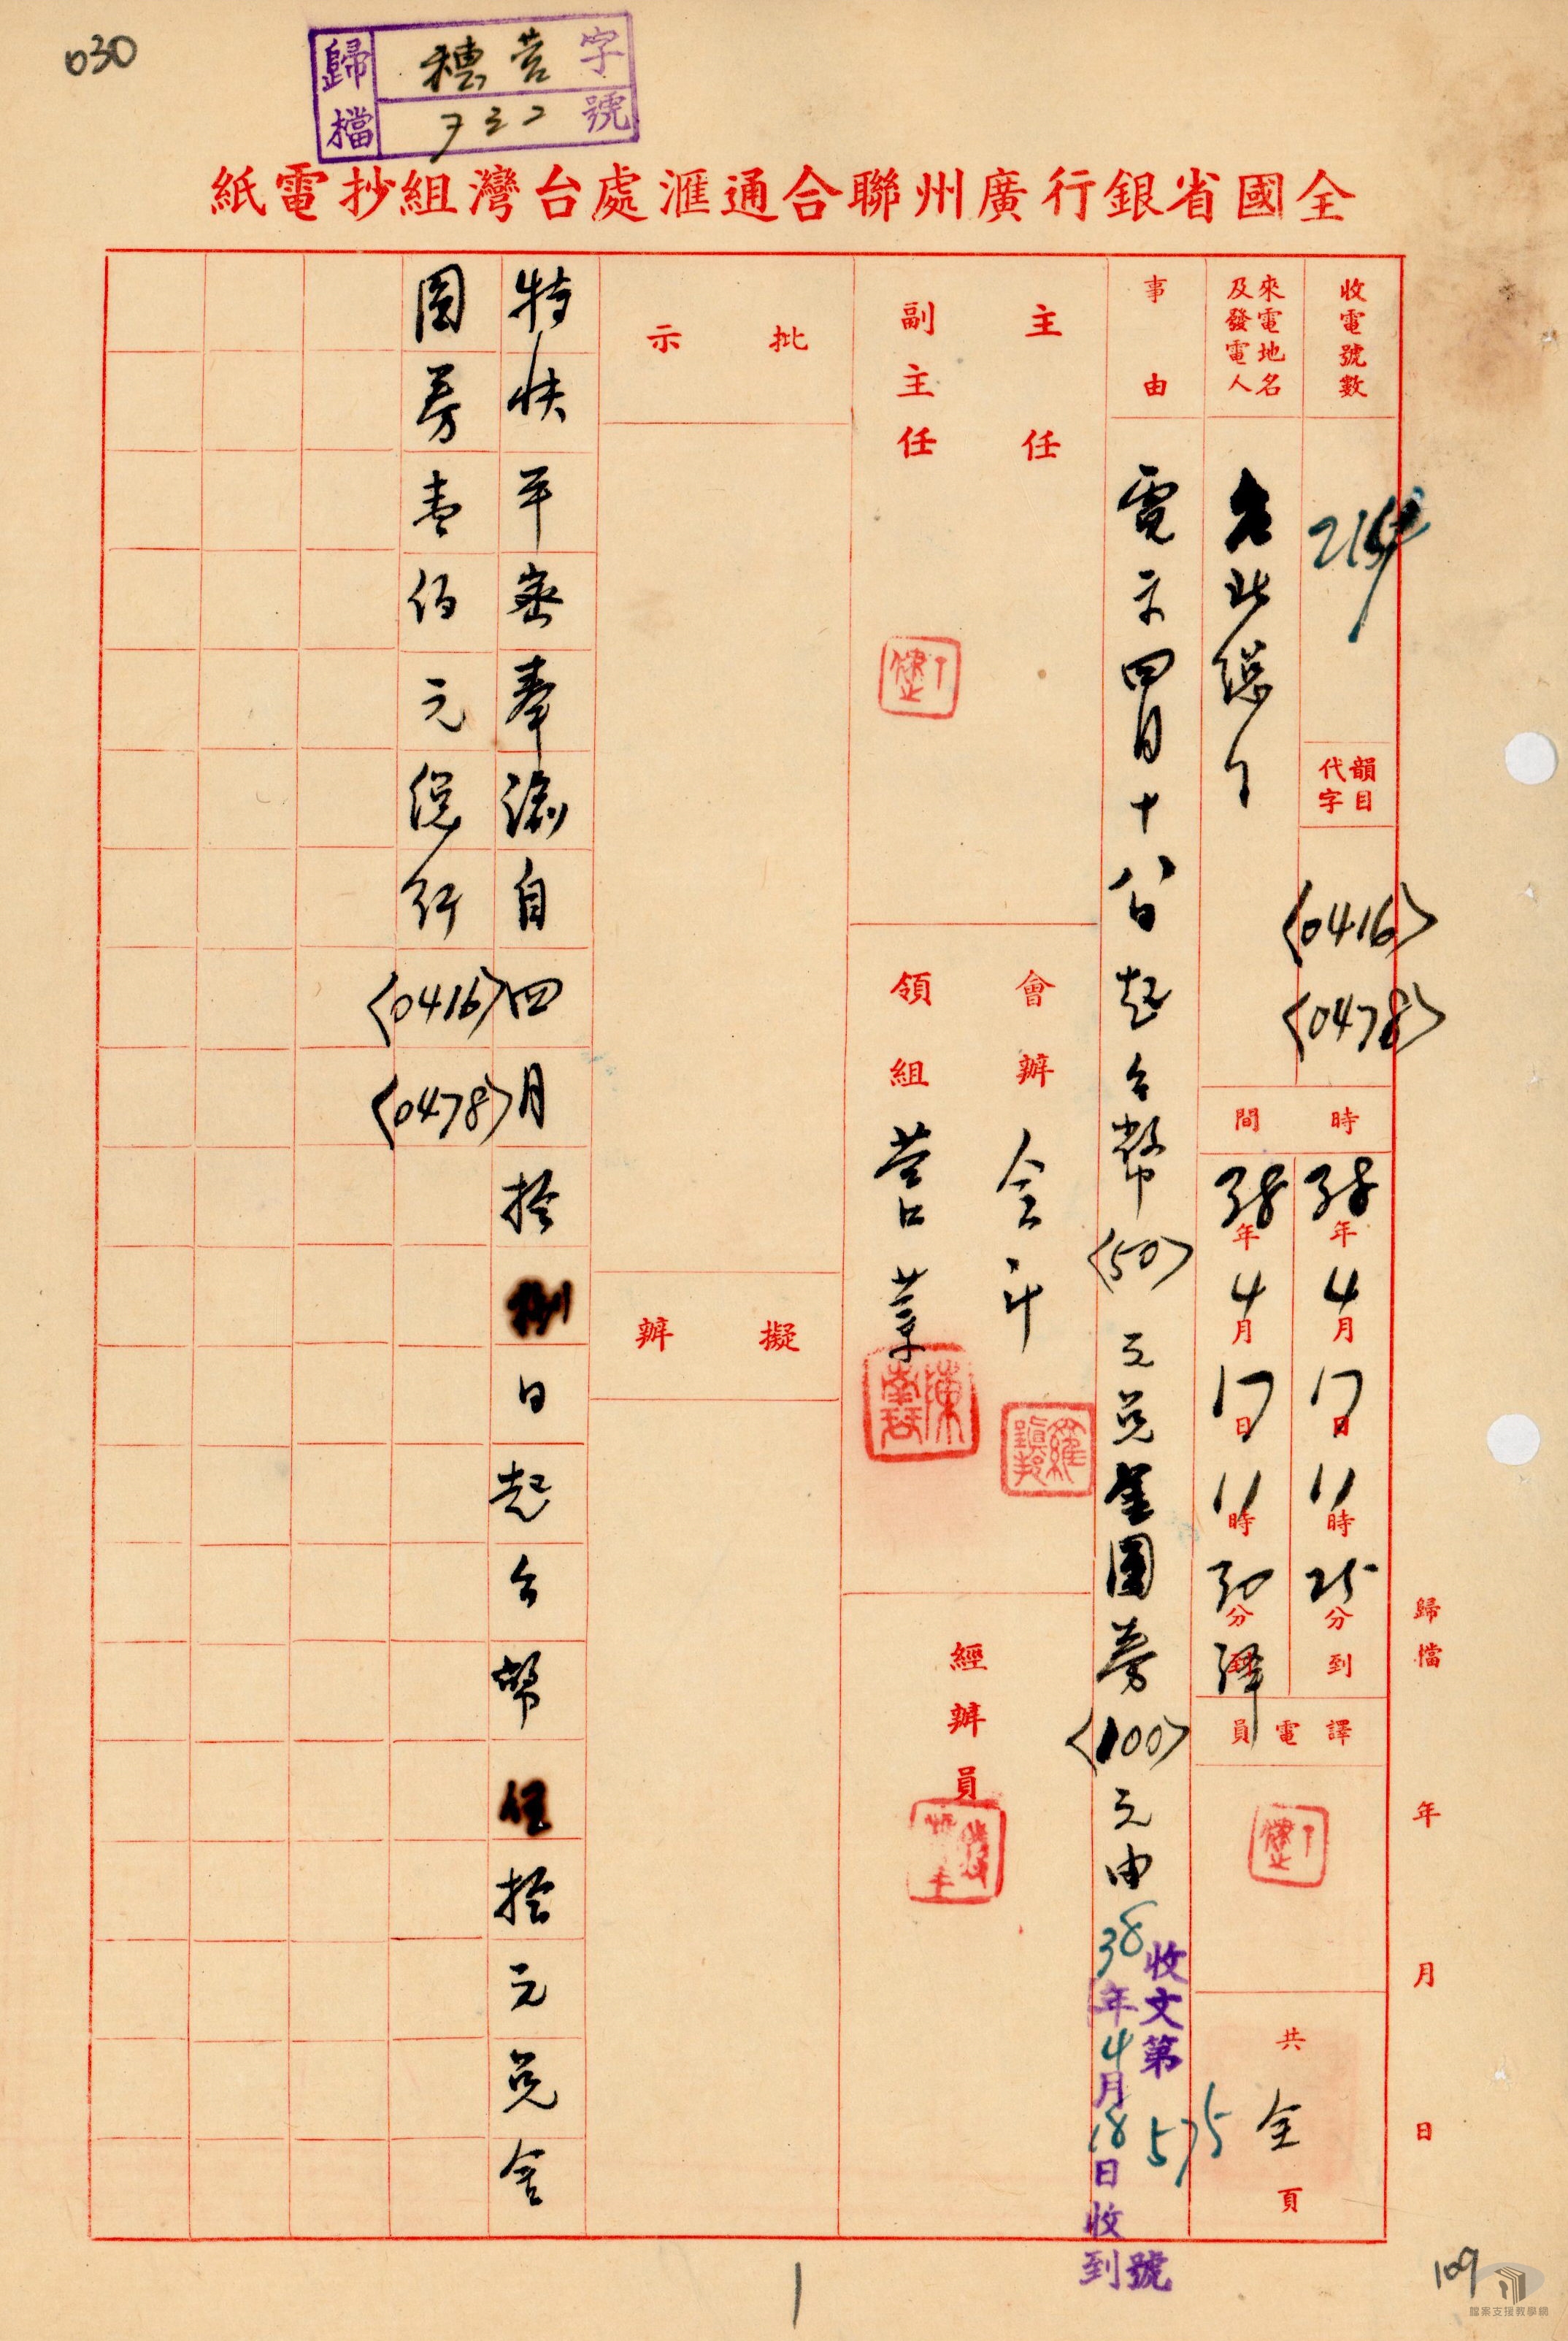 030
歸檔
穗營字
932號
全國省銀行廣州聯合通滙處台灣組抄電紙
收電號數
215
韻目代字
〈0416〉
〈0478〉
來電地名及發電人
台北總行
時間
38年4月17日11時25分到
38年4月17日11時30分譯
譯電員
丁健
共全頁
事由
電示四月十八日起台幣〈50〉元兌金圓券〈100〉元由
收文第575號
38年4月18日收到
主任
副主任
丁健
會辦 會計
羅
領組 營業
陳
經辦員
批示
擬辦
特快平密奉諭自四月拾捌日起台幣伍拾元兌金
圓券壹佰元總行〈0416〉〈0478〉
歸檔 年 月 日
1
109
檔案支援教學網